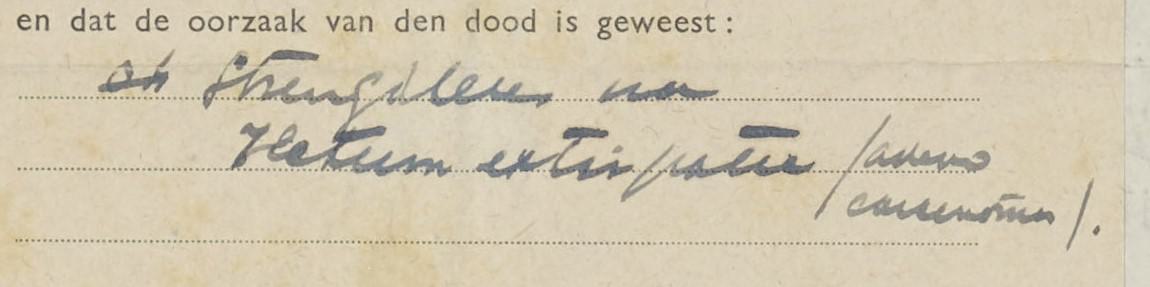 en dat de oorzaak van den dood is geweest :
na
Rectum extirpatie / adeno
carcinoma / .